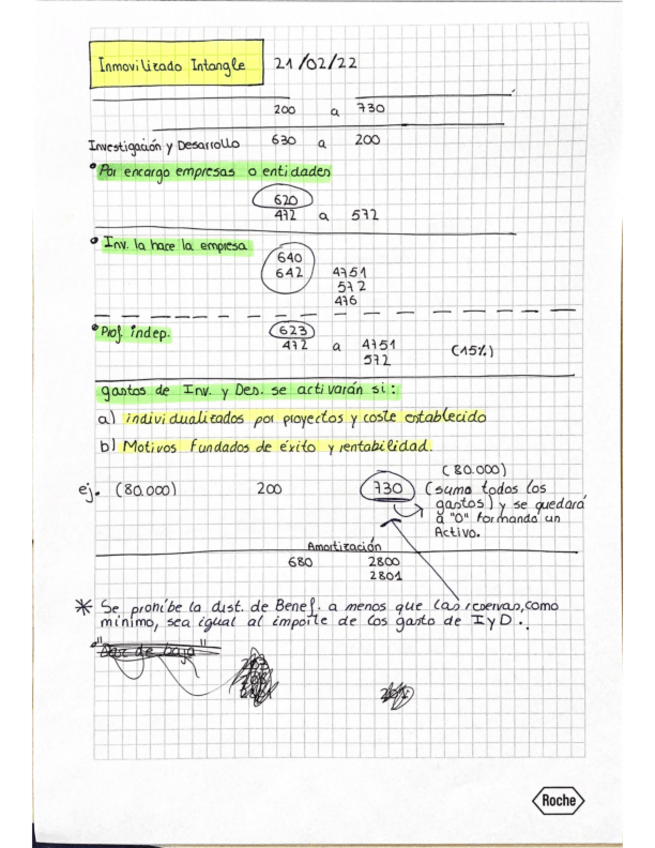 Inmovilizado Intangle 21/02/22
200 a 730
Investigación y Desarrollo 630 a 200
Por encargo empresas o entidades
620
472 a 572
Inv. la hace la empresa
640
642 4751
572
476
Prof. indep. 623
472 a 4751 (15%)
572
gastos de Inv. y Des. se activarán si:
a) individualizados por proyectos y coste establecido
b) Motivos fundados de éxito y rentabilidad.
(80.000)
ej. (80.000) 200 730 (suma todos los
gastos) y se quedará
a "0" formando un
Activo.
Amortización
680 2800
2801
* Se prohíbe la dist. de Benef. a menos que las reservas, como
mínimo, sea igual al importe de los gasto de I y D.
"Dar de baja"
Roche